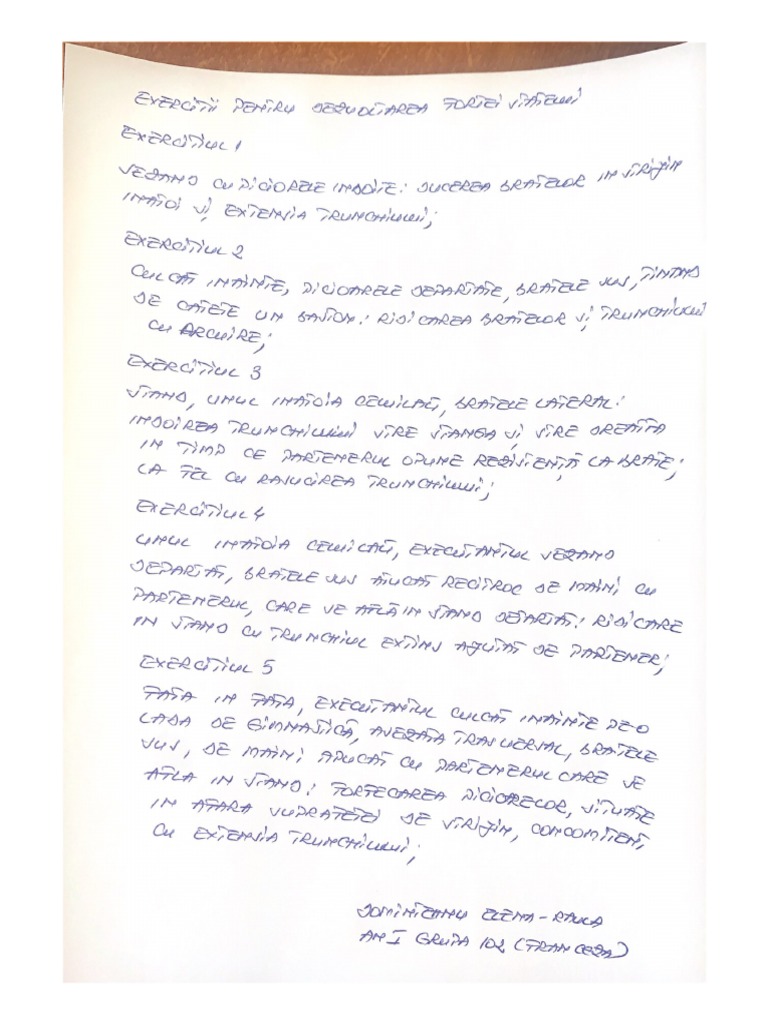 EXERCITII PENTRU DEZVOLTAREA FORTEI SPATELUI
EXERCITIUL 1
SEZAND CU PICIORELE INDOITE: DUCEREA BRATELOR IN SPRIJIN
INAPOI SI EXTENSIA TRUNCHIULUI;
EXERCITIUL 2
CULCAT INAINTE, PICIOARELE DEPARTATE, BRATELE SUS, TINAND
DE CAPETE UN BASTON: RIDICAREA BRATELOR SI TRUNCHIULUI
CU ARCUIRE;
EXERCITIUL 3
STAND, UNUL INAPOIA CELUILALT, BRATELE LATERAL:
INDOIREA TRUNCHIULUI SPRE STANGA SI SPRE DREAPTA
IN TIMP CE PARTENERUL OPUNE REZISTENTA LA BRATE;
LA FEL CU RASUCIREA TRUNCHIULUI;
EXERCITIUL 4
UNUL INAPOIA CELUILALT, EXECUTANTUL SEZAND
DEPARTAT, BRATELE SUS APUCAT RECIPROC DE MAINI CU
PARTENERUL, CARE SE AFLĂ IN STAND DEPARTAT: RIDICARE
IN STAND CU TRUNCHIUL EXTINS AJUTAT DE PARTENER;
EXERCITIUL 5
FATA IN FATA, EXECUTANTUL CULCAT INAINTE PE O
LADA DE GIMNASTICĂ, ASEZATA TRASVERSAL, BRATELE
SUS, DE MAINI APUCAT CU PARTENERUL CARE SE
AFLA IN STAND: FORFECAREA PICIOARELOR, SITUATE
IN AFARA SUPRAFETEI DE SPRIJIN, CONCOMITENT,
CU EXTENSIA TRUNCHIULUI;
ELENA-RALUCA
AN I GRUPA 102 (FRANCEZA)